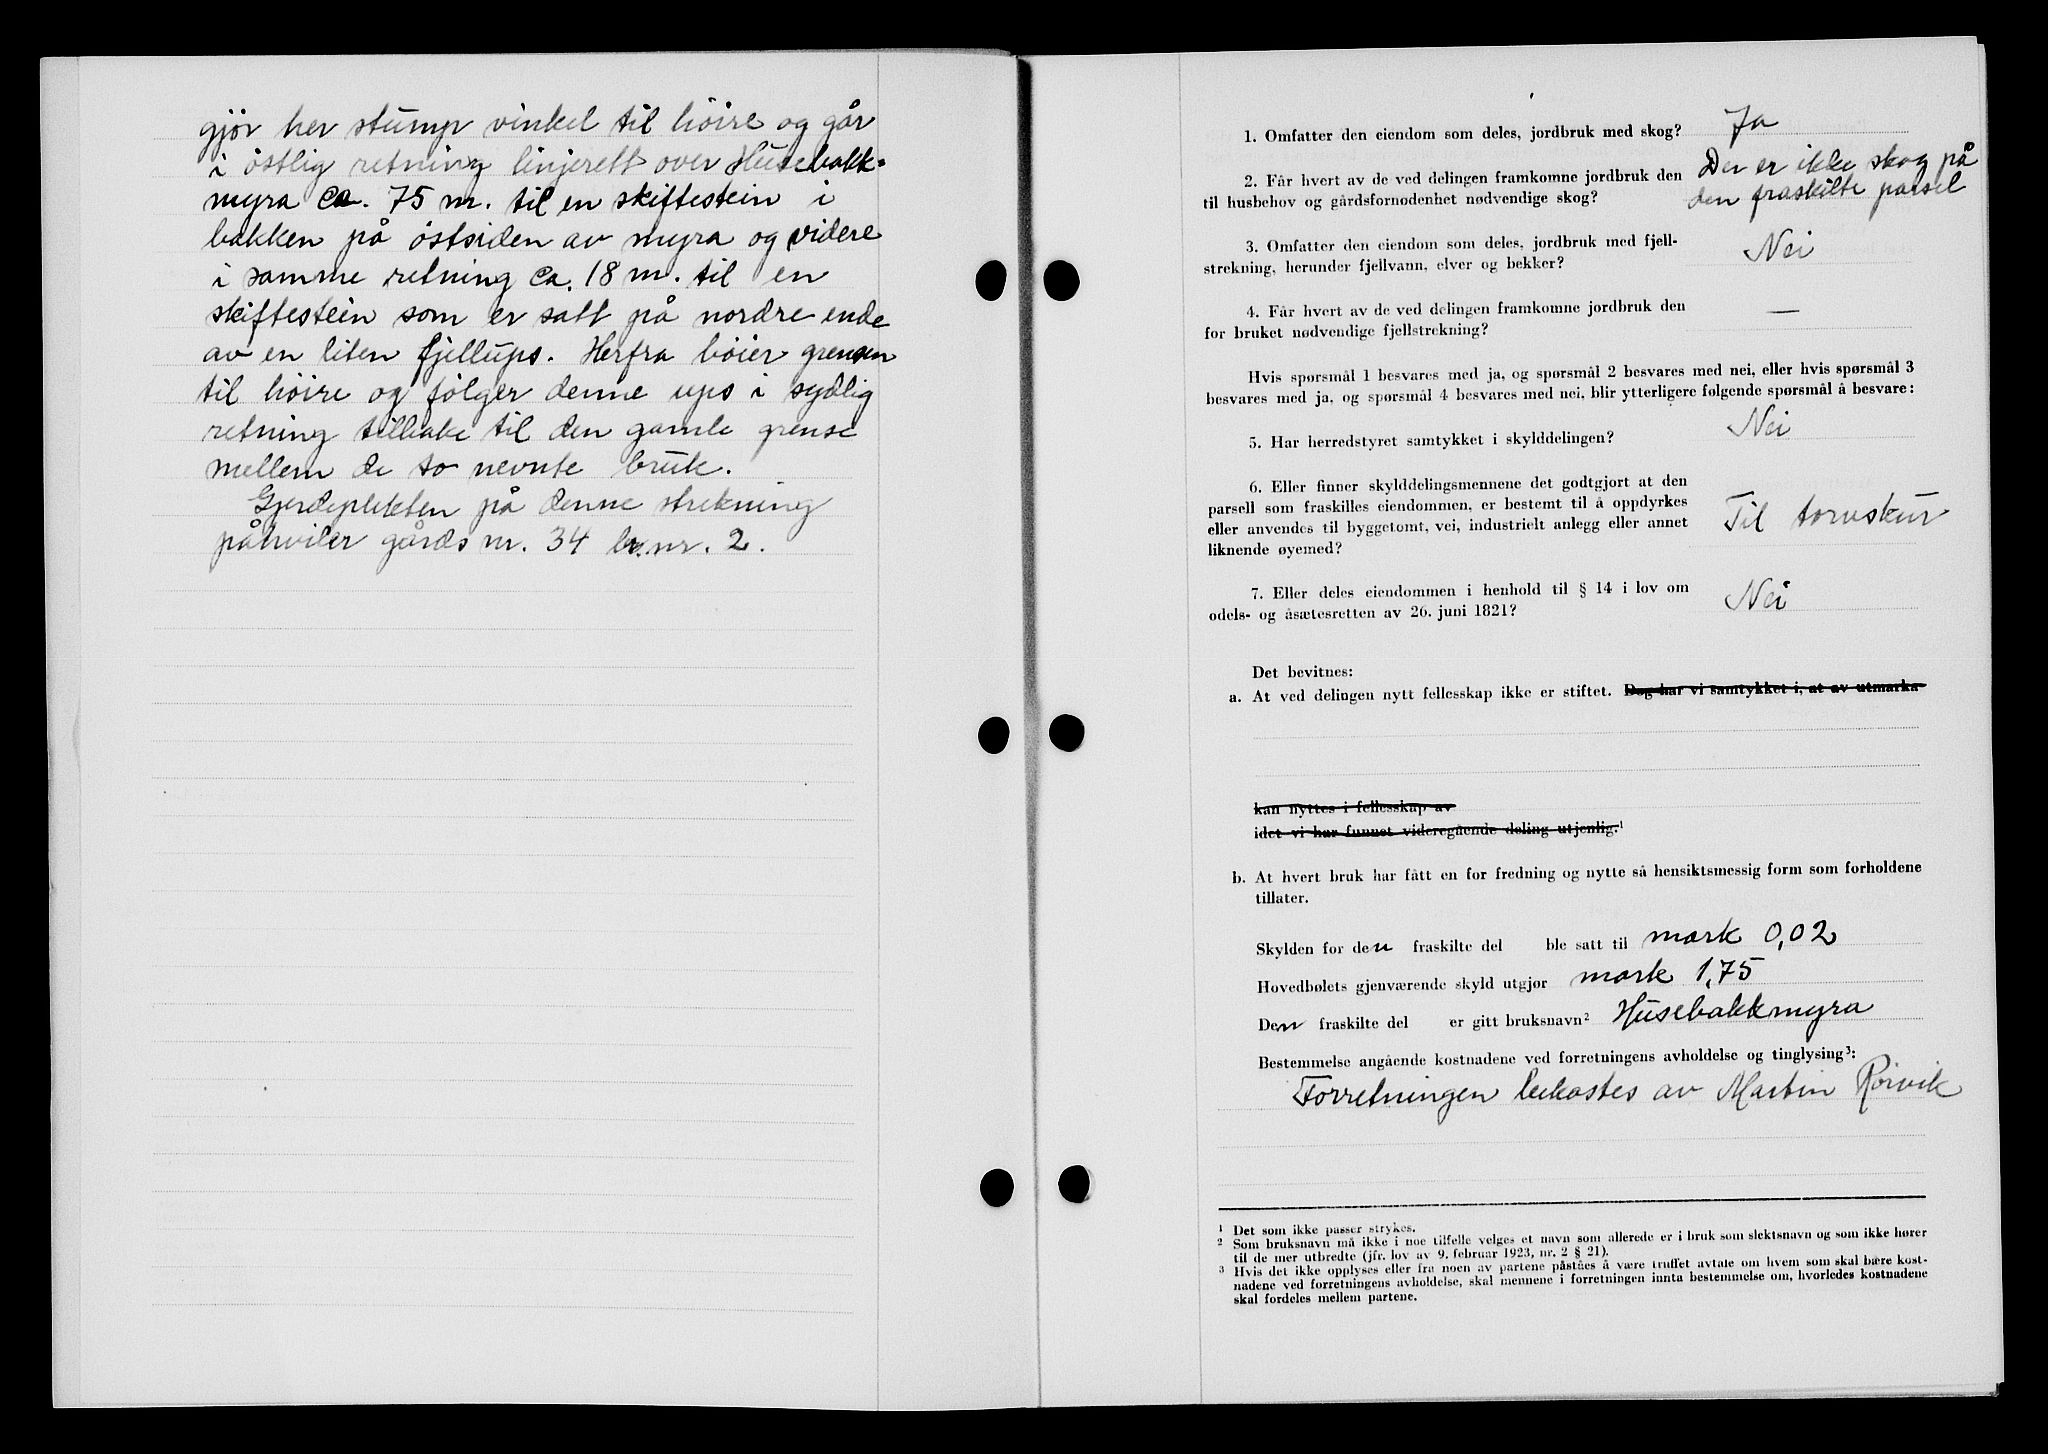 gjör her stump vinkel til höire og går
i östlig retning linjerett over Husebakk-
myra ca. 75 m. til en skiftestein i
bakken på östsiden av myra og videre
i samme retning ca. 18 m. til en
skiftestein som er satt på nordre ende
av en liten fjellups. Herfra böier grensen
til höire og fölger denne ups i sydlig
retning tilbake til den gamle grense
mellem de to nevnte bruk.
Gjerdeplikten på denne strekning
påhviler gårds nr. 34 br. nr. 2.
1. Omfatter den eiendom som deles, jordbruk med skog? Ja
2. Får hvert av de ved delingen framkomne jordbruk den Der er ikke skog på
til husbehov og gårdsfornødenhet nødvendige skog? den fraskilte parsel
3. Omfatter den eiendom som deles, jordbruk med fjell-
strekning, herunder fjellvann, elver og bekker? Nei
4. Får hvert av de ved delingen framkomne jordbruk den
for bruket nødvendige fjellstrekning? —
Hvis spørsmål 1 besvares med ja, og spørsmål 2 besvares med nei, eller hvis spørsmål 3
besvares med ja, og spørsmål 4 besvares med nei, blir ytterligere følgende spørsmål å besvare:
5. Har herredstyret samtykket i skylddelingen? Nei
6. Eller finner skylddelingsmennene det godtgjort at den
parsell som fraskilles eiendommen, er bestemt til å oppdyrkes
eller anvendes til byggetomt, vei, industrielt anlegg eller annet Til torvskur
liknende øyemed?
7. Eller deles eiendommen i henhold til § 14 i lov om Nei
odels- og åsætesretten av 26. juni 1821?
Det bevitnes:
a. At ved delingen nytt fellesskap ikke er stiftet. Dog har vi samtykket i, at av utmarka
kan nyttes i fellesskap av
idet vi har funnet videregående deling utjenlig.¹
b. At hvert bruk har fått en for fredning og nytte så hensiktsmessig form som forholdene
tillater.
Skylden for den fraskilte del ble satt til mark 0,02
Hovedbølets gjenværende skyld utgjør mark 1,75
Den fraskilte del er gitt bruksnavn² Husebakkmyra
Bestemmelse angående kostnadene ved forretningens avholdelse og tinglysing³:
Forretningen bekostes av Martin Rörvik
¹ Det som ikke passer strykes.
² Som bruksnavn må ikke i noe tilfelle velges et navn som allerede er i bruk som slektsnavn og som ikke hører
til de mer utbredte (jfr. lov av 9. februar 1923, nr. 2 § 21).
³ Hvis det ikke opplyses eller fra noen av partene påståes å være truffet avtale om hvem som skal bære kost-
nadene ved forretningens avholdelse, skal mennene i forretningen innta bestemmelse om, hvorledes kostnadene
skal fordeles mellem partene.